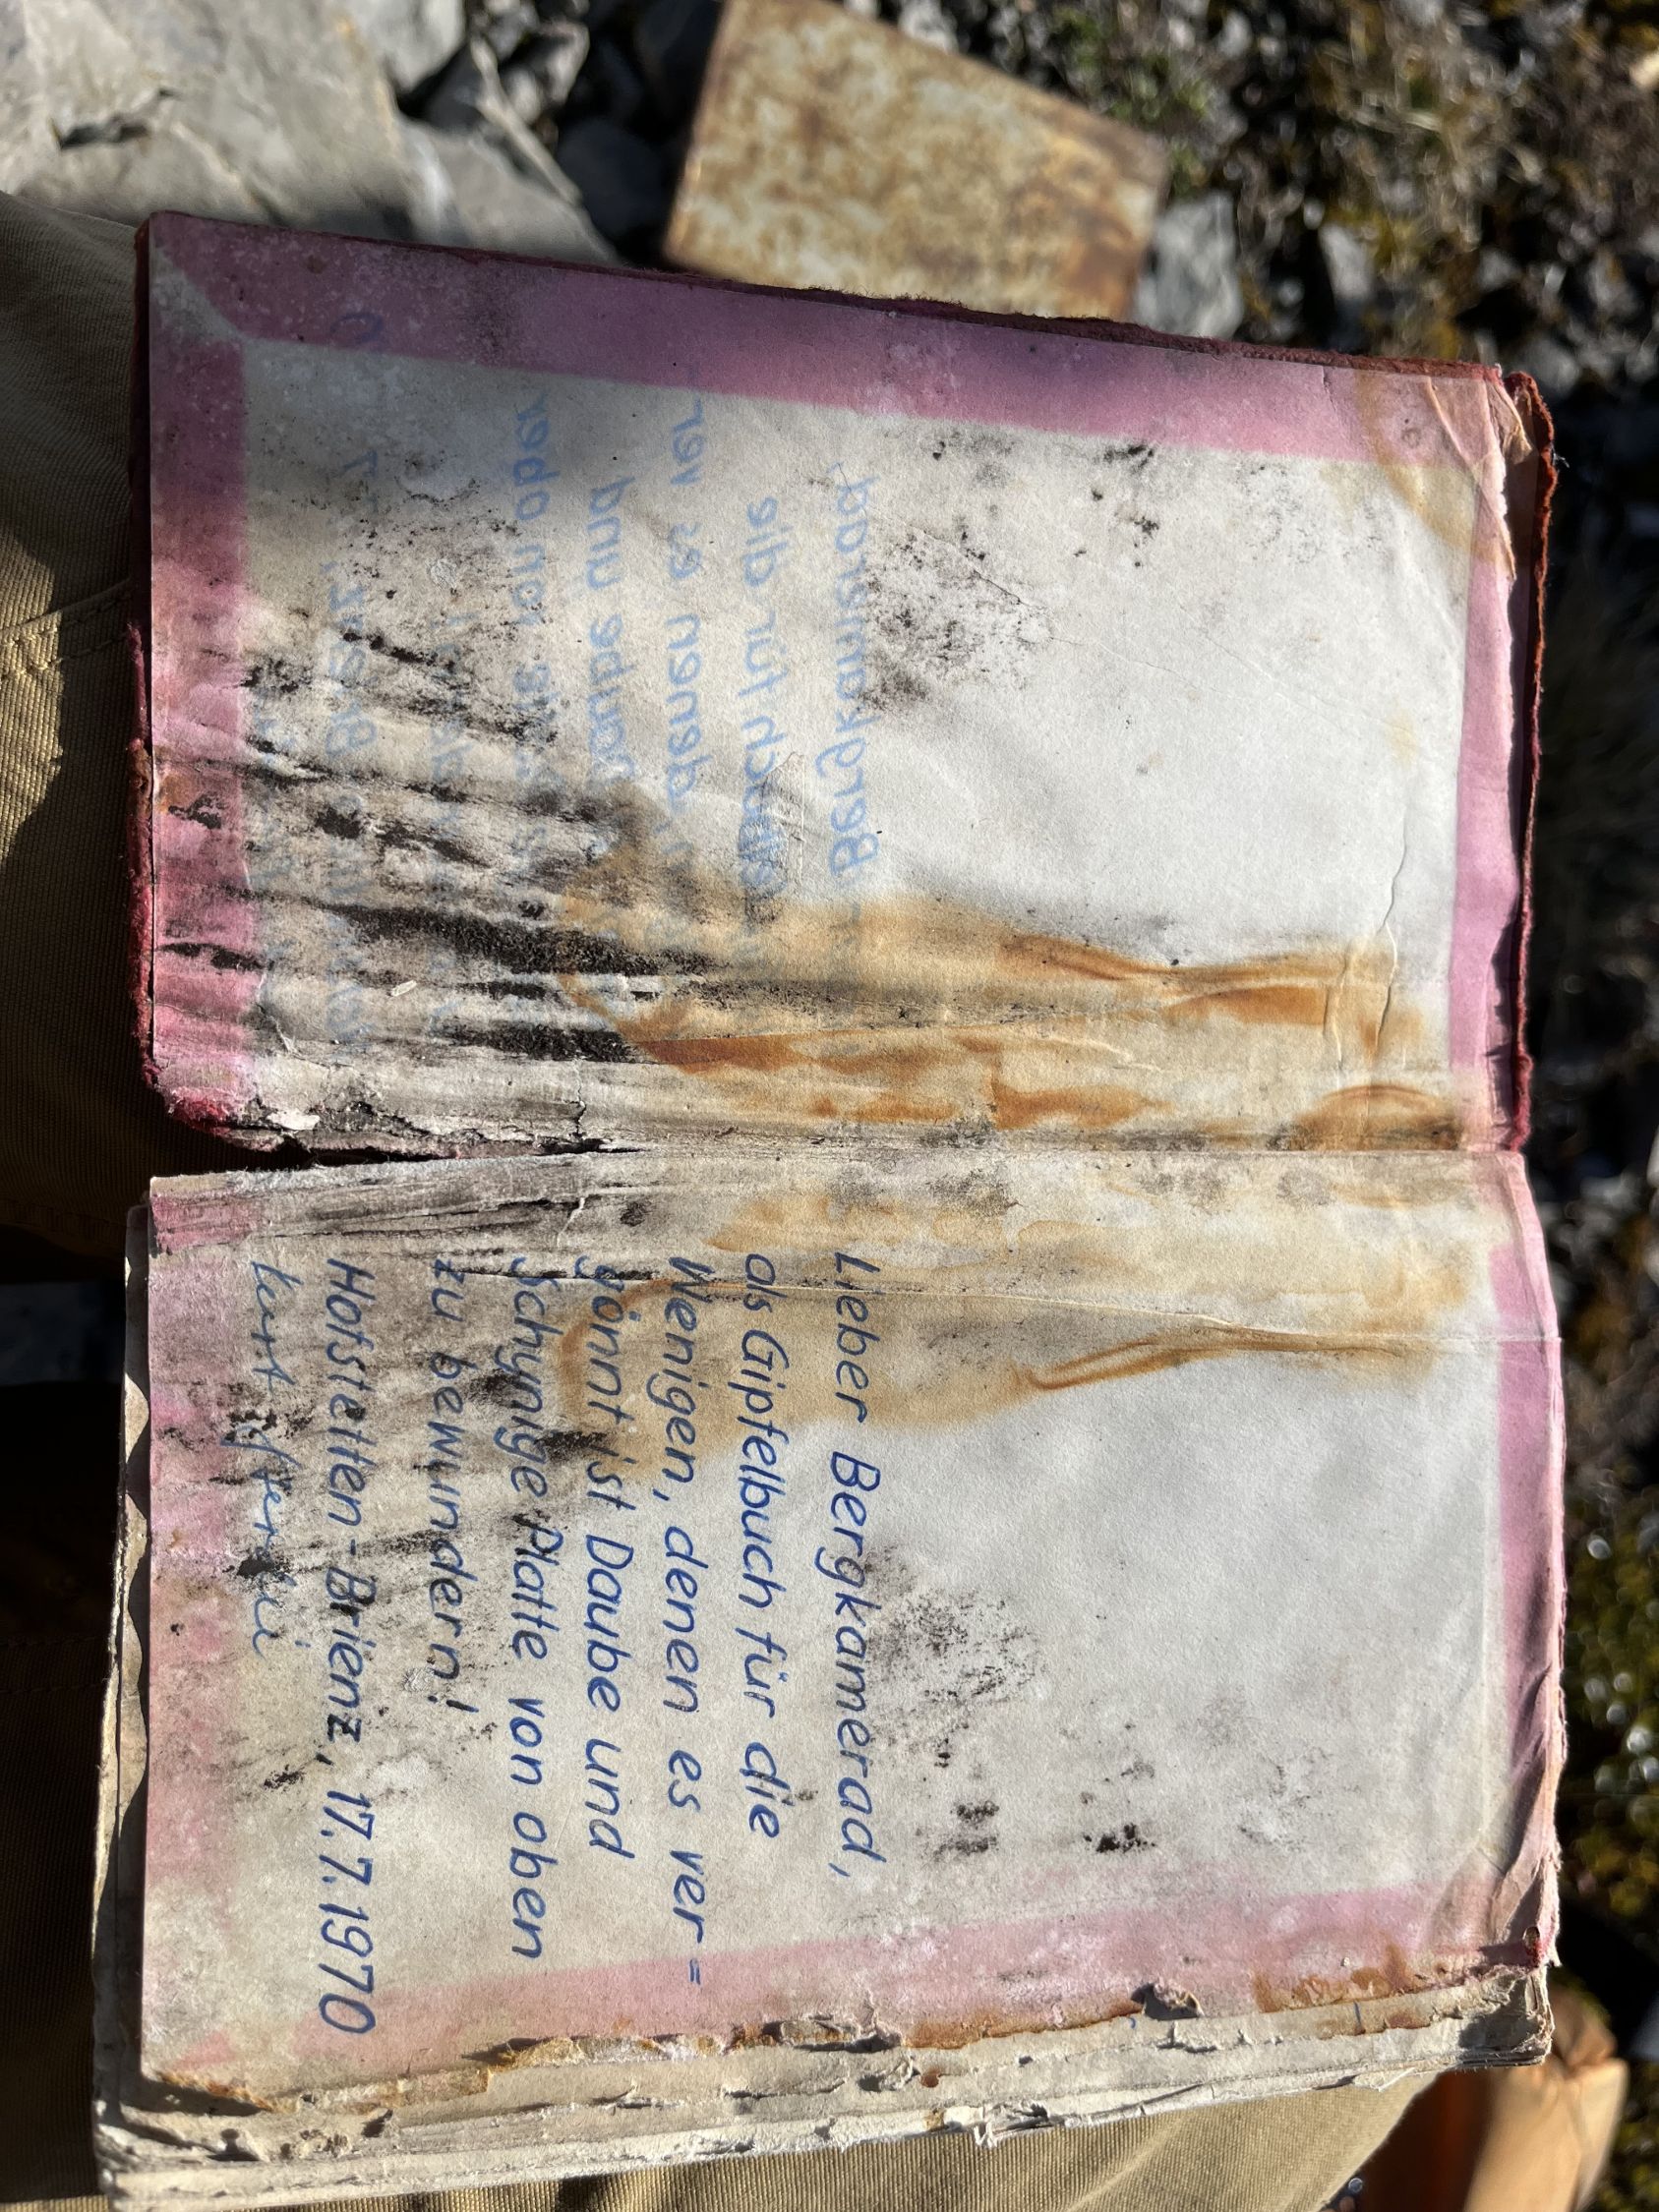 Lieber Bergkamerad,
als Gipfelbuch für die
Wenigen, denen es ver=
gönnt ist Daube und
Schynige Platte von oben
zu bewundern!
Hofstetten-Brienz, 17.7.1970
Kurt